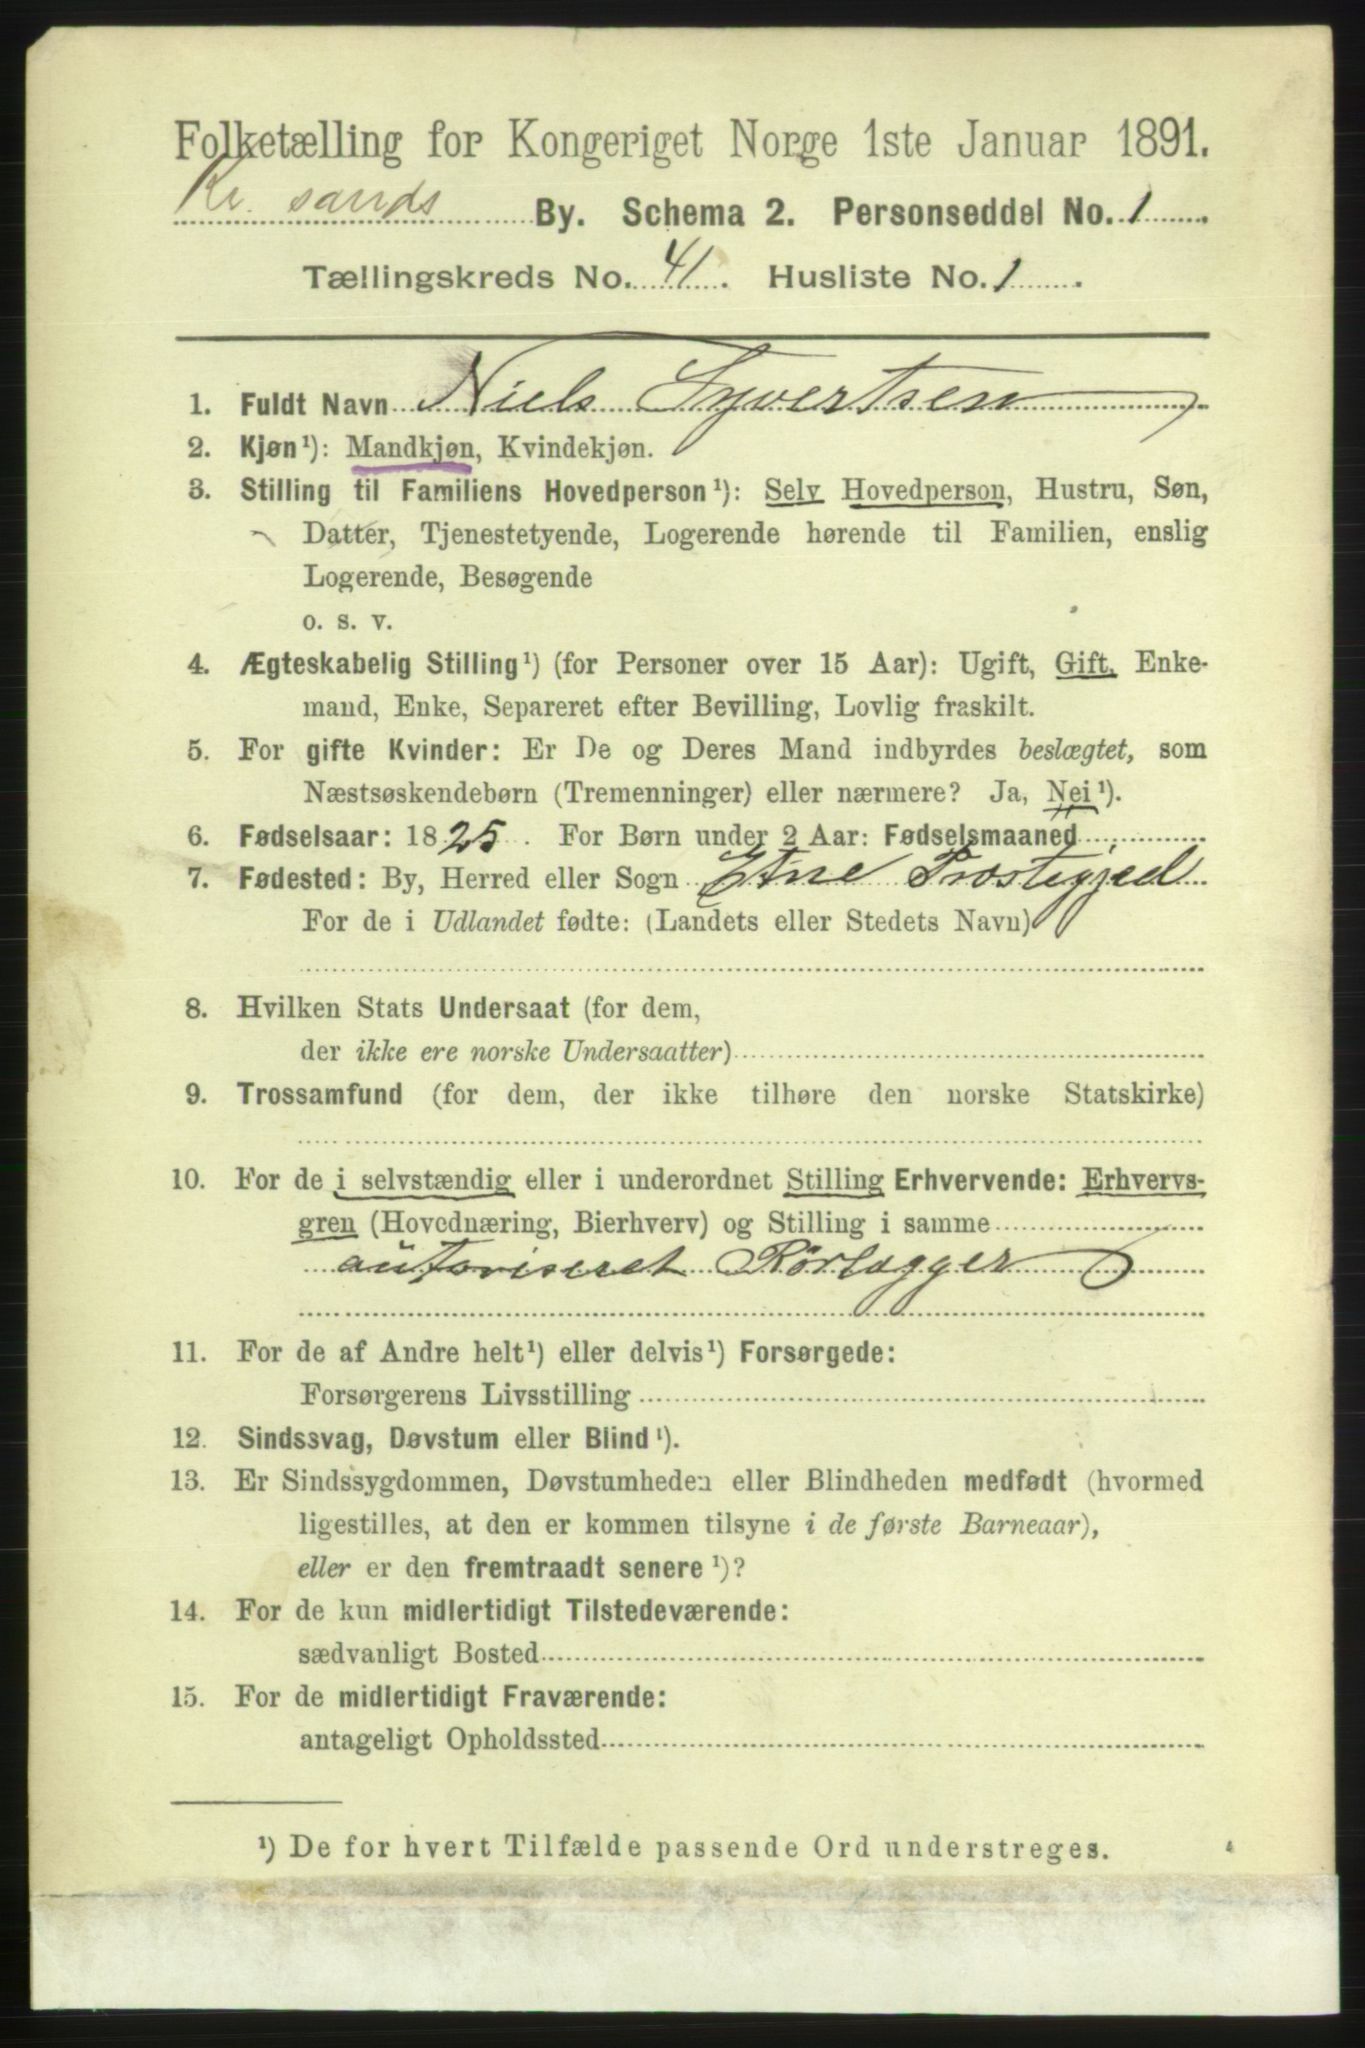 Folketælling for Kongeriget Norge 1ste Januar 1891.
Kr. sands By. Schema 2. Personseddel No. 1.
Tællingskreds No. 41. Husliste No. 1.
1. Fuldt Navn Niels Syvertsen
2. Kjøn¹): Mandkjøn, Kvindekjøn.
3. Stilling til Familiens Hovedperson¹): Selv Hovedperson, Hustru, Søn,
Datter, Tjenestetyende, Logerende hørende til Familien, enslig
Logerende, Besøgende
o. s. v.
4. Ægteskabelig Stilling¹) (for Personer over 15 Aar): Ugift, Gift, Enke-
mand, Enke, Separeret efter Bevilling, Lovlig fraskilt.
5. For gifte Kvinder: Er De og Deres Mand indbyrdes beslægtet, som
Næstsøskendebørn (Tremenninger) eller nærmere? Ja, Nei¹).
6. Fødselsaar: 1825. For Børn under 2 Aar: Fødselsmaaned
7. Fødested: By, Herred eller Sogn Etne Præstegjæld
For de i Udlandet fødte: (Landets eller Stedets Navn)
8. Hvilken Stats Undersaat (for dem,
der ikke ere norske Undersaatter)
9. Trossamfund (for dem, der ikke tilhøre den norske Statskirke)
10. For de i selvstændig eller i underordnet Stilling Erhvervende: Erhvervs-
gren (Hovednæring, Bierhverv) og Stilling i samme
autoriseret Rörlægger
11. For de af Andre helt¹) eller delvis¹) Forsørgede:
Forsørgerens Livsstilling
12. Sindssvag, Døvstum eller Blind¹).
13. Er Sindssygdommen, Døvstumheden eller Blindheden medfødt (hvormed
ligestilles, at den er kommen tilsyne i de første Barneaar),
eller er den fremtraadt senere¹)?
14. For de kun midlertidigt Tilstedeværende:
sædvanligt Bosted
15. For de midlertidigt Fraværende:
antageligt Opholdssted
¹) De for hvert Tilfælde passende Ord understreges.